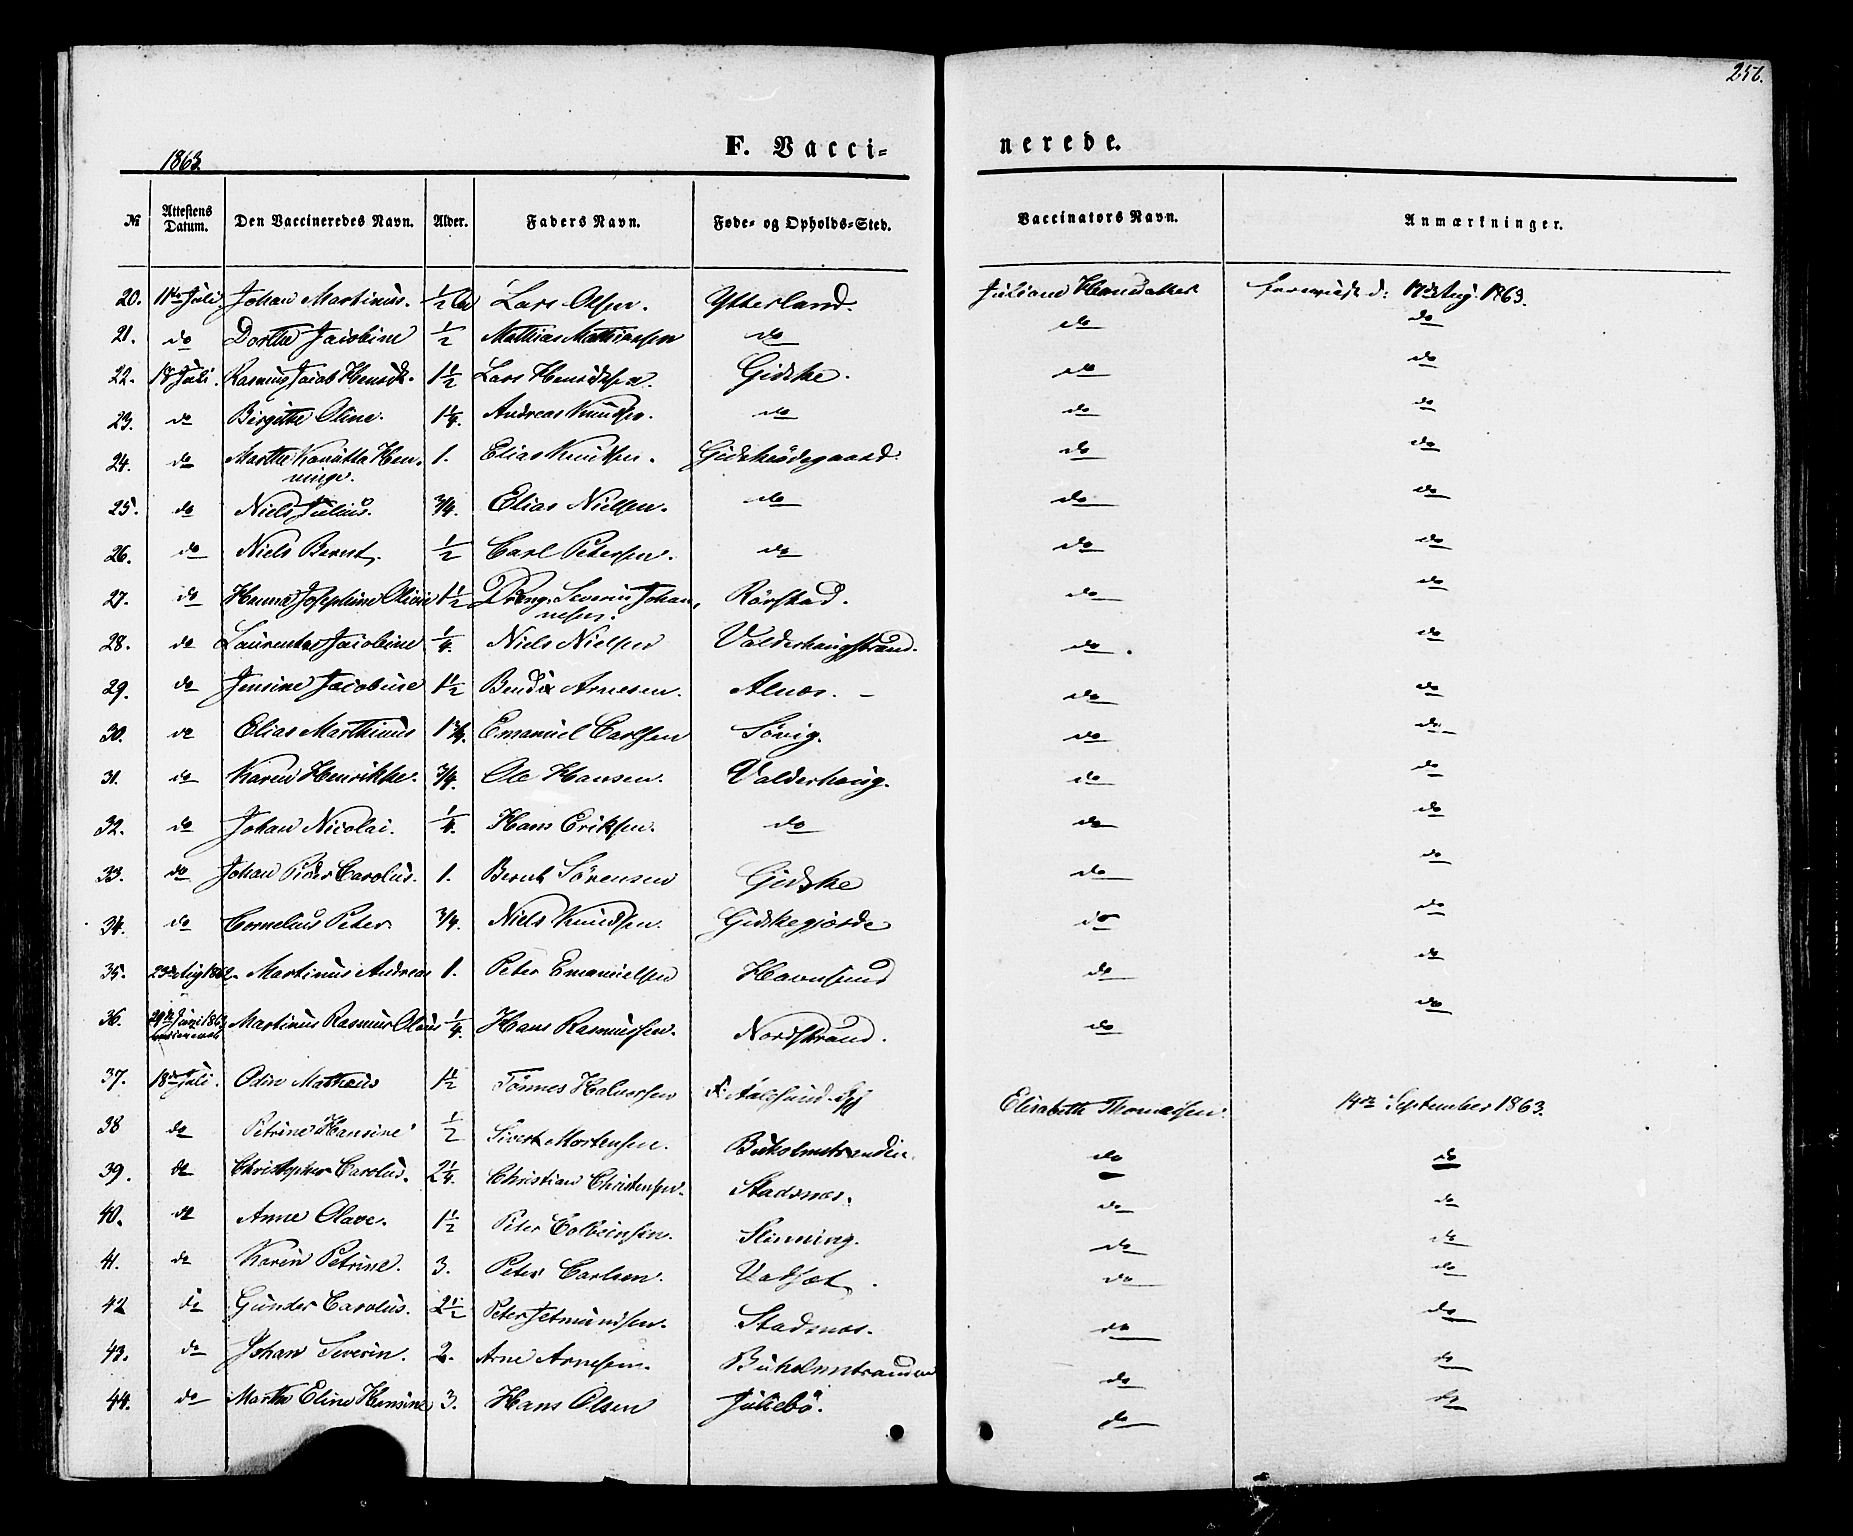 256.
1863.
F. Vacci-
nerede.
№ Attestens Datum. Den Vaccineredes Navn. Alder. Faders Navn. Føde- og Opholds-Sted. Vaccinators Navn. Anmærkninger.
20. 11te Juli Johan Martinus. 1/2 Lars Olsen. Ytterland. Juliane 17de Aug. 1863.
21. do Dorthe Jacobine 1/2 Mathias Mathiassen do do do
22. 18 Juli. Rasmus Jacob Henrik. 1 1/2 Lars Henriksen. Gidske. do do
23. do Birgitte Oline. 1 1/4. Andreas Knudsen. do do do
24. do Marthe Hen- 1. Elias Knudsen. Gidskeödegaard. do do
ninge.
25. do Niels Julius. 3/4. Elias Nielsen. do do do
26. do Niels Bernt. 1/2 Carl Petersen. do do do
27. do Hanna Josephine Olivie 1 1/2 Dreng Severin Johan- Rörstad. do do
nesen.
28. do Laurentze Jacobine 1/4. Niels Nielsen Valderhaugstrand. do. do
29. do Jensine Jacobine 1 1/2 Bendix Arnesen. Alnæs. – do do
30. do Elias Marthinus 1 3/4. Emanuel Carlsen Sövig. do do
31. do Karen Henrikke. 3/4. Ole Hansen. Valderhaug. do do
32. do Johan Nicolai. 1/4. Hans Eriksen. do do do
33. do Johan Peder Carolus. 1. Bernt Sörensen Gidske do do
34. do Cornelius Peter 3/4. Niels Knudsen. Gidskegjorde do do
35. 23de Aug 1862. Martinus Andreas 1. Peter Emanuelsen Havnsund do do
36. 29de Juni 1863 Martinus Rasmus Olaus 1/4. Hans Rasmussen. Nordstrand. do do
37. 18de Juli. Odin Mathæus 1 1/2 Tönnes Halvorsen Aalesund Elisabeth Thomassen. 14de September 1863.
38 do Petrine Hansine 1/2 Sivert Mortensen. Bukholmstranden. do do
39. do Christopher Carolus. 2 1/4. Christian Christensen. Stadsnæs. do do
40. do Anne Olave. 1 1/2 Peter Slinning. do do
41. do Karen Petrine. 3. Peter Carlsen. Vadsæt. do do
42 do Gunder Carolus. 2 1/2 Peter Jetmundsen. Stadsnæs. do do
43. do Johan Severin. 2. Arne Arnesen. Bukholmstranden do do
44. do Marthe Eline Hansine 3. Hans Olsen Juliebö. do do